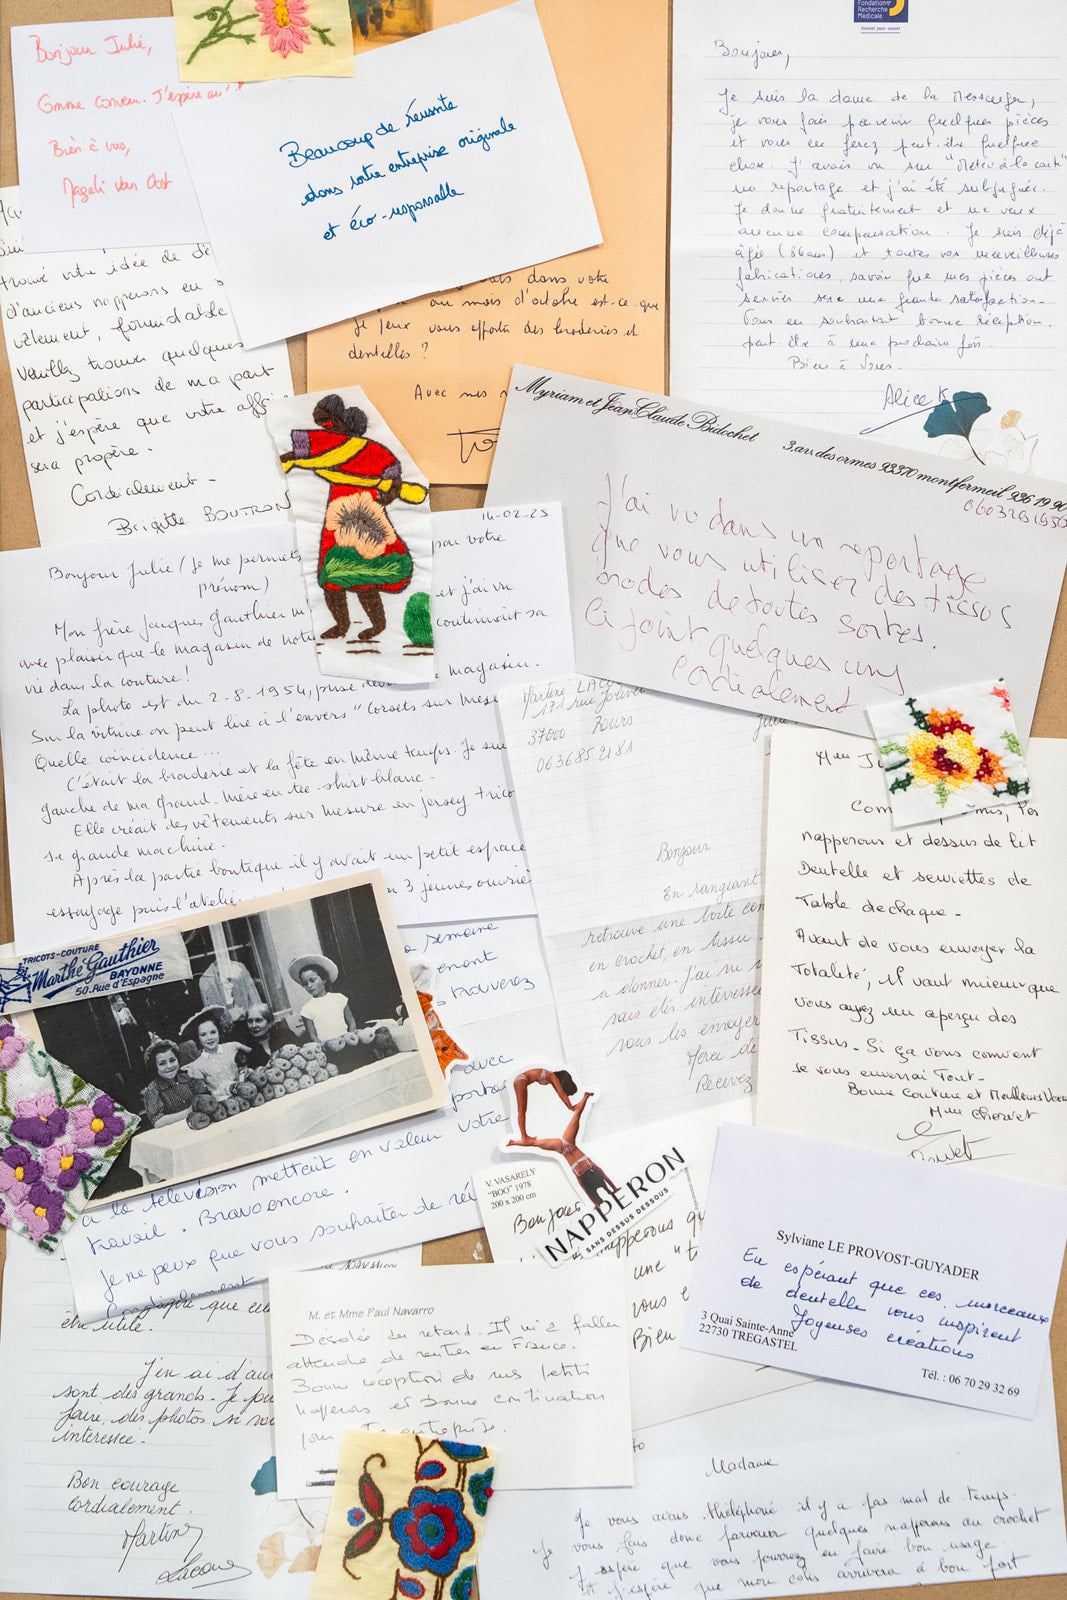 Bonjour Julie,
Comme convenu. J'espère
Bien à vous,
Magali Van Oost
Beaucoup de réussite
dans votre entreprise originale
et éco-responsable
Fondation
Recherche
Médicale
innover pour sauver
Bonjour,
Je suis la dame de la
je vous fais parvenir quelques pièces
et vous en ferez peut-être quelque
chose. J'avais vu sur "Météo à la carte"
un reportage et j'ai été subjuguée.
Je donne gratuitement et ne veux
aucune compensation. Je suis déjà
âgée (86 ans) et toutes vos merveilleuses
fabrications, savoir que mes pièces ont
servies sera une grande satisfaction.
Vous en souhaitant bonne réception,
peut être à une prochaine fois.
Bien à Vous.
Alice K
trouvé votre idée de
d'anciens napperons en
vêtement, formidable
veuillez trouver quelques
participations de ma part
et j'espère que votre
sera propère.
Cordialement.
Brigitte BOUTRON
dans votre
au mois d'octobre est-ce que
je peux vous apporter des broderies et
dentelles ?
Avec mes
Myriam et Jean Claude Bidochet
3.av. des ormes 93370 montfermeil 936 19 90
J'ai vu dans un reportage
que vous utilisez des tissus
brodés de toutes sortes.
Ci joint quelques uns
Cordialement
14-02-25
Bonjour Julie (je me permets
pour votre
prénom)
Mon frère Jacques Gauthier
et j'ai vu
avec plaisir que le magasin de
continuait sa
vie dans la couture !
La photo est du 2-8-1954, prise
magasin.
Sur la vitrine on peut lire à l'envers "Corsets sur
Quelle coincidence...
C'était la braderie et la fête en même temps. Je
gauche de ma grand-mère en tee-shirt blanc.
Elle créait des vêtements sur mesure en jersey
sa grande machine.
Après la partie boutique il y avait un petit espace
essayage puis l'atelier
3 jeunes
Martine
37000 Tours
06 36 85 21 81
Bonjour
En rangeant
retrouvé une boîte
en crochet, en tissu
à donner. J'ai vu
vous les envoyer
Merci de
Recevez
napperons et dessus de lit
Dentelle et serviettes de
Table de chaque.
Avant de vous envoyer la
Totalité, il vaut mieux que
vous ayez un aperçu des
Tissus. Si ça vous convient
je vous enverrai Tout.
Bonne Couture et Meilleurs Voeux
Mme Chorvet
TRICOTS-COUTURE
Marthe Gauthier
BAYONNE
50, Rue d'Espagne
semaine
trouverez
avec
à la télévision mettait en valeur votre
travail. Bravo encore.
Je ne peux que vous souhaiter de
V. VASARELY
"BOO" 1978
200 x 200 cm
NAPPERON
SANS DESSUS DESSOUS
Bonjour
napperons
une
vous
Bien
Sylviane LE PROVOST-GUYADER
En espérant que ces morceaux
de dentelle vous inspirent
Joyeuses créations
3 Quai Sainte-Anne
22730 TREGASTEL
Tél. : 06 70 29 32 69
M. et Mme Paul Navarro
Désolée du retard. Il m'a fallu
attendre de rentrer en France.
Bonne réception de mes petits
naperons et bonne continuation
pour entreprise.
être utile.
J'en ai
sont des grands. Je
faire des photos si
intéressée.
Bon courage
cordialement.
Martine
Madame
Je vous avais téléphoné il y a pas mal de temps.
Je vous fais donc parvenir quelques napperons au crochet
j'espère que vous pourrez en faire bon usage.
et j'espère que mon colis arrivera à bon port